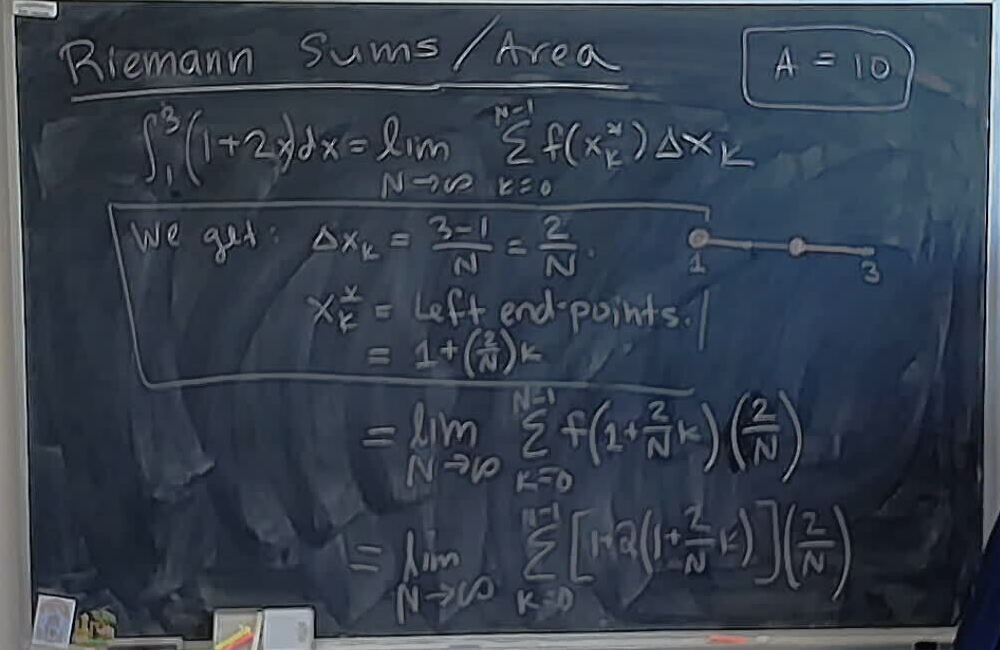 Riemann Sums/Area
A = 10
∫₁³(1+2x)dx = lim N→∞ Σ k=0 N-1 f(x*ₖ)Δxₖ
We get: Δxₖ = 3-1/N = 2/N.
1 3
x*ₖ = Left end-points.
= 1+(2/N)k
= lim N→∞ Σ k=0 N-1 f(1+2/N k)(2/N)
= lim N→∞ Σ k=0 n-1 [1+2(1+2/N k)](2/N)